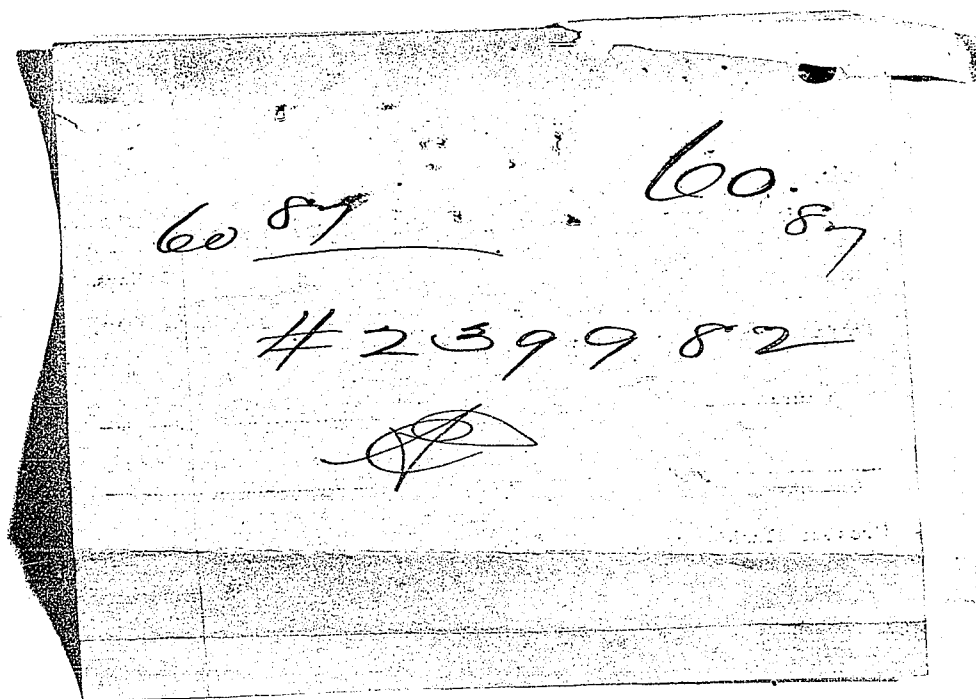 60.87
60 87
#239982